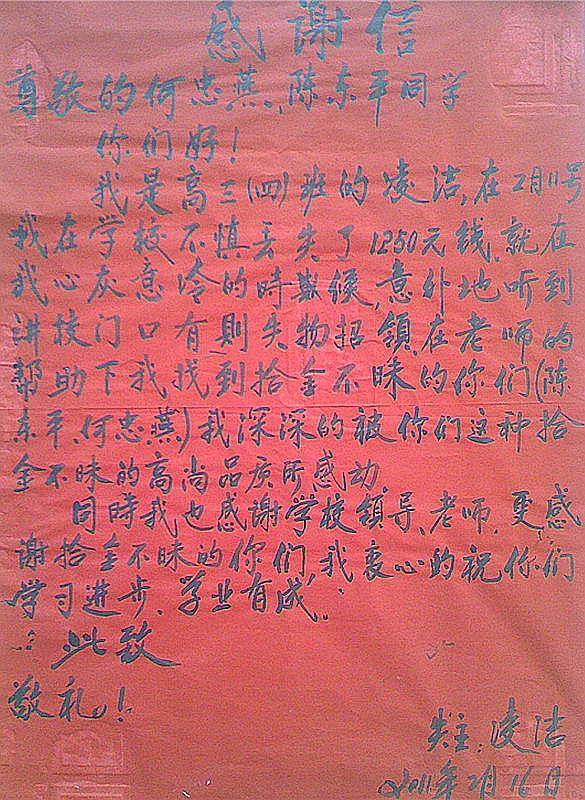 感谢信
尊敬的何忠燕、陈东平同学
你们好!
我是高三(四)班的凌洁,在2月11号
我在学校不慎丢失了1250元钱,就在
我心灰意冷的時候,意外地听到
讲校门口有则失物招领,在老师的
帮助下我找到拾金不昧的你们(陈
东平、何忠燕)我深深的被你们这种拾
金不昧的高尚品质所感动。
同時我也感谢学校领导、老师,更感
谢拾金不昧的你们,我衷心的祝你们
学习进步、学业有成。
此致
敬礼!
失主:凌洁
2011年2月16日